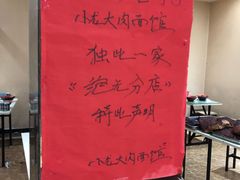 小龙大肉面馆
独此一家
《绝无分店》
特此声明
小龙大肉面馆